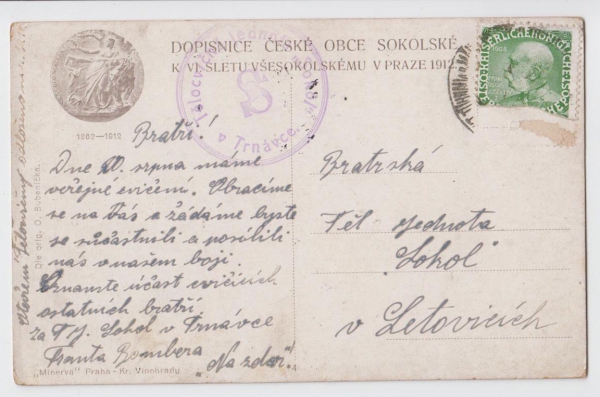 DOPISNICE ČESKÉ OBCE SOKOLSKÉ
K VI. SLETU VŠESOKOLSKÉMU V PRAZE 1912.
1862—1912
Tělocvičná jednota „Sokol“
v Trnávce
S
1908
Bratři!
Dne srpna máme
veřejné cvičení. Obracíme
se na Vás a žádáme byste
se súčastnili a posílili
nás v našem boji.
Oznamte účast cvičících
ostatních bratří.
za T.J. Sokol v Trnávce
Franta Bombera
„Na zdar!“
Dle orig. O. Bubeníčka.
„Minerva“ Praha - Kr. Vinohrady
Bratrská
Těl. jednota
„Sokol“
v Letovicích